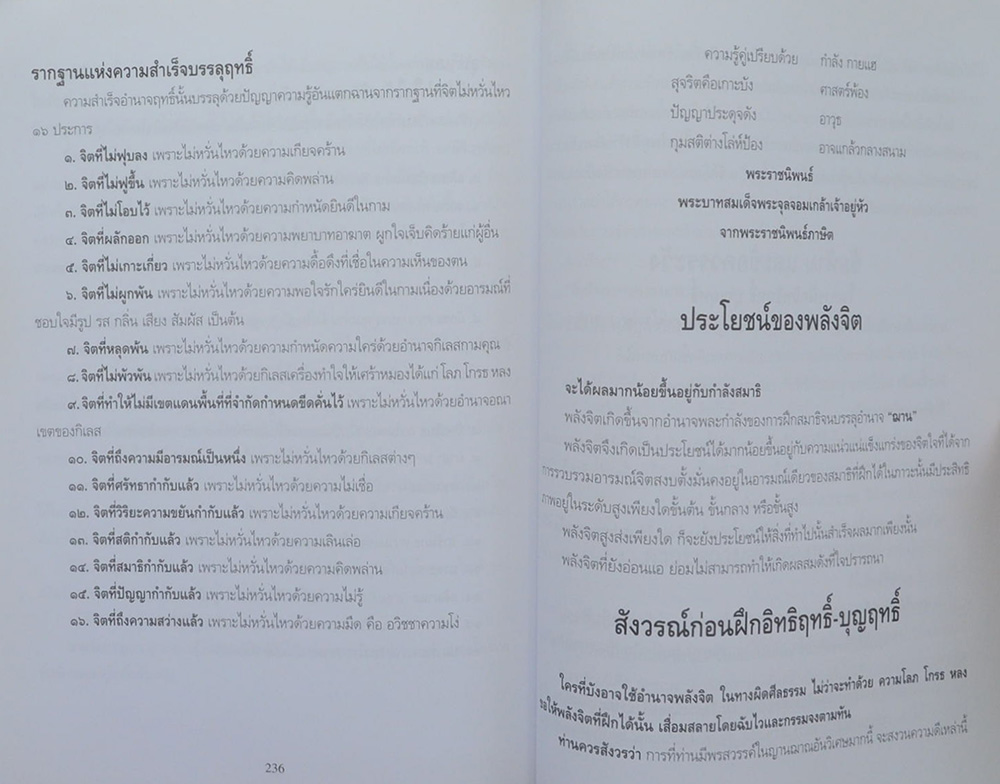 รากฐานแห่งความสำเร็จบรรลุฤทธิ์
ความสำเร็จอำนาจฤทธิ์นั้นบรรลุด้วยปัญญาความรู้อันแตกฉานจากรากฐานที่จิตไม่หวั่นไหว
๑๖ ประการ
๑. จิตที่ไม่ฟุบลง เพราะไม่หวั่นไหวด้วยความเกียจคร้าน
๒. จิตที่ไม่ฟูขึ้น เพราะไม่หวั่นไหวด้วยความคิดพล่าน
๓. จิตที่ไม่โอบไว้ เพราะไม่หวั่นไหวด้วยความกำหนัดยินดีในกาม
๔. จิตที่ผลักออก เพราะไม่หวั่นไหวด้วยความพยาบาทอาฆาต ผูกใจเจ็บคิดร้ายแก่ผู้อื่น
๕. จิตที่ไม่เกาะเกี่ยว เพราะไม่หวั่นไหวด้วยความดื้อดึงที่เชื่อในความเห็นของตน
๖. จิตที่ไม่ผูกพัน เพราะไม่หวั่นไหวด้วยความพอใจรักใคร่ยินดีในกามเนื่องด้วยอารมณ์ที่
ชอบใจมีรูป รส กลิ่น เสียง สัมผัส เป็นต้น
๗. จิตที่หลุดพ้น เพราะไม่หวั่นไหวด้วยความกำหนัดความใคร่ด้วยอำนาจกิเลสกามคุณ
๘. จิตที่ไม่พัวพัน เพราะไม่หวั่นไหวด้วยกิเลสเครื่องทำใจให้เศร้าหมองได้แก่ โลภ โกรธ หลง
๙. จิตที่ทำให้ไม่มีเขตแดนพื้นที่ที่จำกัดกำหนดขีดคั่นไว้ เพราะไม่หวั่นไหวด้วยอำนาจอณา
เขตของกิเลส
๑๐. จิตที่ถึงความมีอารมณ์เป็นหนึ่ง เพราะไม่หวั่นไหวด้วยกิเลสต่างๆ
๑๑. จิตที่ศรัทธากำกับแล้ว เพราะไม่หวั่นไหวด้วยความไม่เชื่อ
๑๒. จิตที่วิริยะความขยันกำกับแล้ว เพราะไม่หวั่นไหวด้วยความเกียจคร้าน
๑๓. จิตที่สติกำกับแล้ว เพราะไม่หวั่นไหวด้วยความเลินเล่อ
๑๔. จิตที่สมาธิกำกับแล้ว เพราะไม่หวั่นไหวด้วยความคิดพล่าน
๑๕. จิตที่ปัญญากำกับแล้ว เพราะไม่หวั่นไหวด้วยความไม่รู้
๑๖. จิตที่ถึงความสว่างแล้ว เพราะไม่หวั่นไหวด้วยความมืด คือ อวิชชาความโง่
236
ความรู้คู่เปรียบด้วย กำลัง กายแฮ
สุจริตคือเกาะบัง ศาสตร์พ้อง
ปัญญาประดุจดัง อาวุธ
กุมสติต่างโล่ห์ป้อง อาจแกล้วกลางสนาม
พระราชนิพนธ์
พระบาทสมเด็จพระจุลจอมเกล้าเจ้าอยู่หัว
จากพระราชนิพนธ์ภาษิต
ประโยชน์ของพลังจิต
จะได้ผลมากน้อยขึ้นอยู่กับกำลังสมาธิ
พลังจิตเกิดขึ้นจากอำนาจพละกำลังของการฝึกสมาธิจนบรรลุอำนาจ "ฌาน"
พลังจิตจึงเกิดเป็นประโยชน์ได้มากน้อยขึ้นอยู่กับความแน่วแน่แข็งแกร่งของจิตใจที่ได้จาก
การรวบรวมอารมณ์จิตสงบตั้งมั่นคงอยู่ในอารมณ์เดียวของสมาธิที่ฝึกได้ในภาวะนั้นมีประสิทธิ
ภาพอยู่ในระดับสูงเพียงใดขั้นต้น ขั้นกลาง หรือขั้นสูง
พลังจิตสูงส่งเพียงใด ก็จะยังประโยชน์ให้สิ่งที่ทำไปนั้นสำเร็จผลมากเพียงนั้น
พลังจิตที่ยังอ่อนแอ ย่อมไม่สามารถทำให้เกิดผลสมดังที่ใจปรารถนา
สังวรณ์ก่อนฝึกอิทธิฤทธิ์-บุญฤทธิ์
ใครที่บังอาจใช้อำนาจพลังจิต ในทางผิดศีลธรรม ไม่ว่าจะทำด้วย ความโลภ โกรธ หลง
ขอให้พลังจิตที่ฝึกได้นั้น เสื่อมสลายโดยฉับไวและกรรมจงตามทัน
ท่านควรสังวรว่า การที่ท่านมีพรสวรรค์ในญานฌาณอันวิเศษมากนี้ จะสงวนความดีเหล่านี้